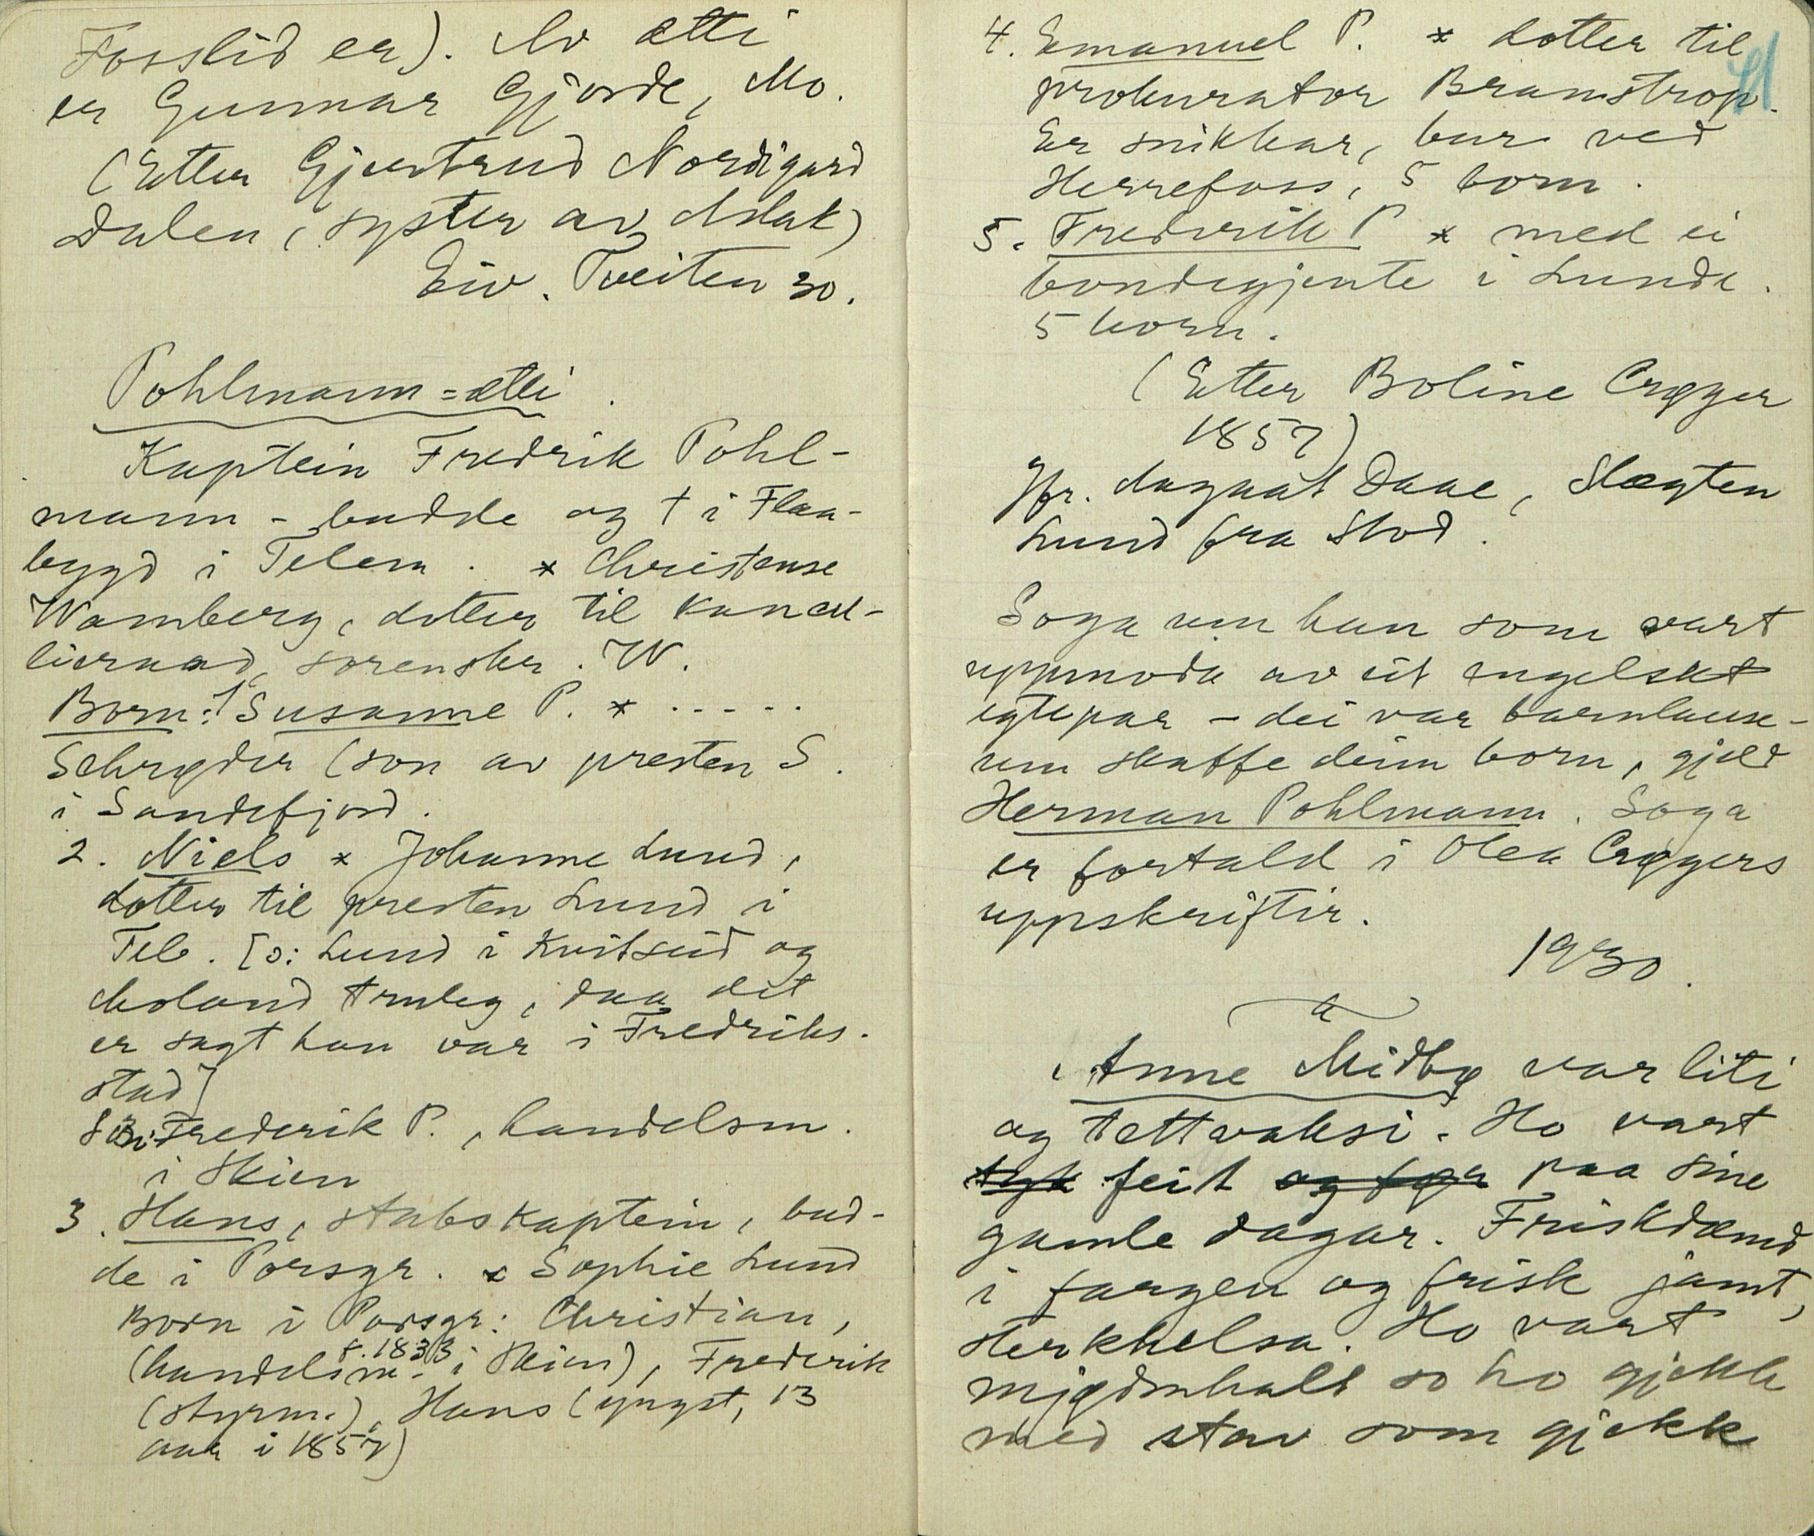 Fosslid er). Av ætti
er Gunnar Gjorde, Mo.
(Etter Gjertrud Nordigard
Dalen, syster av Aslak)
Eiv. Tveiten 30.
Pohlmann=ætti.
Kaptein Fredrik Pohl-
mann - budde og † i Flaa-
bygd i Telem. * Christense
Wamberg, dotter til kancel-
lieraad, sorenskr. W.
Born: 1 Susanne P. * .....
Schrøder (son av presten S.
i Sandefjord.
2. Niels * Johanne Lund,
dotter til presten Lund i
Tel. [ɔ: Lund i Kvitseid og
Moland truleg, daa det
er sagt han var i Fredriks-
stad]
Frederik P., handelsm.
i Skien
3. Hans, stabskaptein, bud-
de i Porsgr. * Sophie Lund
Born i Porsgr: Christian,
f. 1833
(handelsm. i Skien), Frederik
(styrm.), Hans (yngst, 13
aar i 1857)
41
4. Emanuel P. * dotter til
prokurator Bramstrop.
Er snikkar, bur ved
Herrefoss, 5 born.
5. Fredrik P * med ei
bondegjente i Lunde.
5 born.
(Etter Boline Crøger
1857)
Jfr. Daae, Slægten
Lund fra Stod.
Soga um han som vart
uppmoda av eit engelskt
egtepar - dei var barnlause -
um skaffe deim born, gjeld
Herman Pohlmann. Soga
er fortald i Olea Crøgers
uppskriftir.
1930.
a
Anne Midbø var liti
og tettvaksi. Ho vart
tyk feit og før paa sine
gamle dagar. Friskdæmd
i fargen og frisk jamt,
sterkhelsa. Ho vart
mjødmhalt so ho gjekk
med stav som gjekk